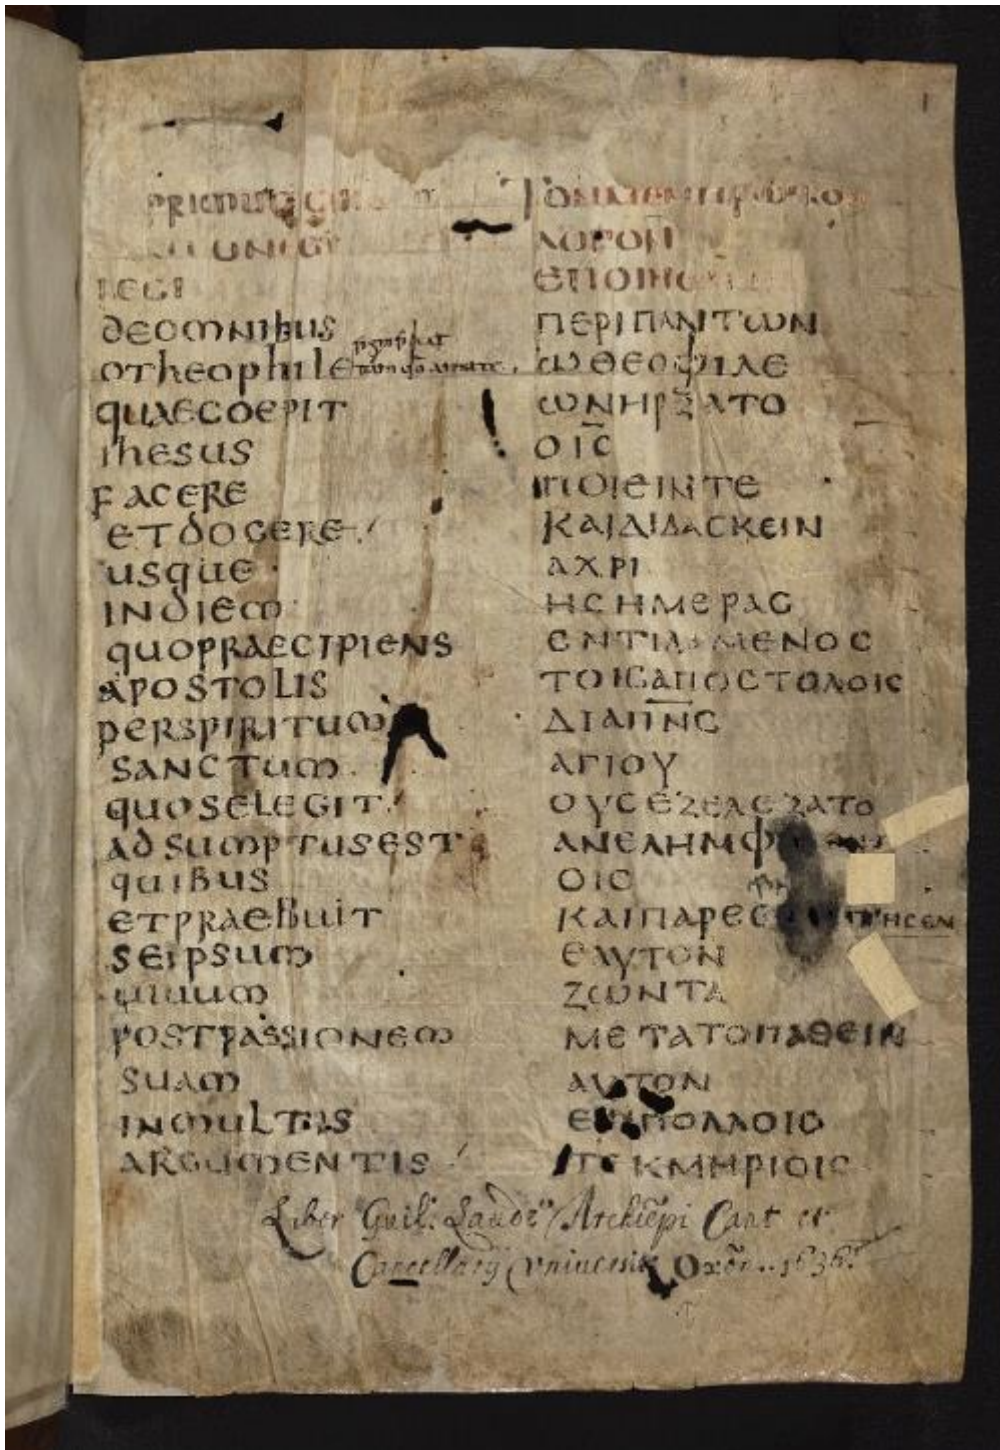 PRIMUM
DEOMNIBUS
OTHEOPHILE
QUAECOEPIT
IHESUS
FACERE
ETDOCERE
USQUE
INDIEM
QUOPRAECIPIENS
APOSTOLIS
PERSPIRITUM
SANCTUM
QUOSELEGIT
ADSUMPTUSEST
QUIBUS
ETPRAEBUIT
SEIPSUM
UIUUM
POSTPASSIONEM
SUAM
INMULTIS
ARGUMENTIS
ΤΟΝΜΕΝΠΡΩΤΟΝ
ΛΟΓΟΝ
ΕΠΟΙΗϹΑ
ΠΕΡΙΠΑΝΤΩΝ
ΩΘΕΟΦΙΛΕ
ΩΝΗΡΞΑΤΟ
ΟΙ̅Ϲ̅
ΠΟΙΕΙΝΤΕ
ΚΑΙΔΙΔΑϹΚΕΙΝ
ΑΧΡΙ
ΗϹΗΜΕΡΑϹ
ΕΝΤΙΛΑΜΕΝΟϹ
ΤΟΙϹΑΠΟϹΤΟΛΟΙϹ
ΔΙΑΠ̅Ν̅Ϲ̅
ΑΓΙΟΥ
ΟΥϹΕΞΕΛΕΞΑΤΟ
ΑΝΕΛΗΜΦ
ΟΙϹ
ΚΑΙΠΑΡΕϹ
ΕΑΥΤΟΝ
ΖΩΝΤΑ
ΜΕΤΑΤΟΠΑΘΕΙΝ
ΑΥΤΟΝ
ΕΝΠΟΛΛΟΙϹ
ΤΕΚΜΗΡΙΟΙϹ
Liber Guil: Laudi Archiepi Cant et
Cancellarij Vniuersit: Oxon. 1636.